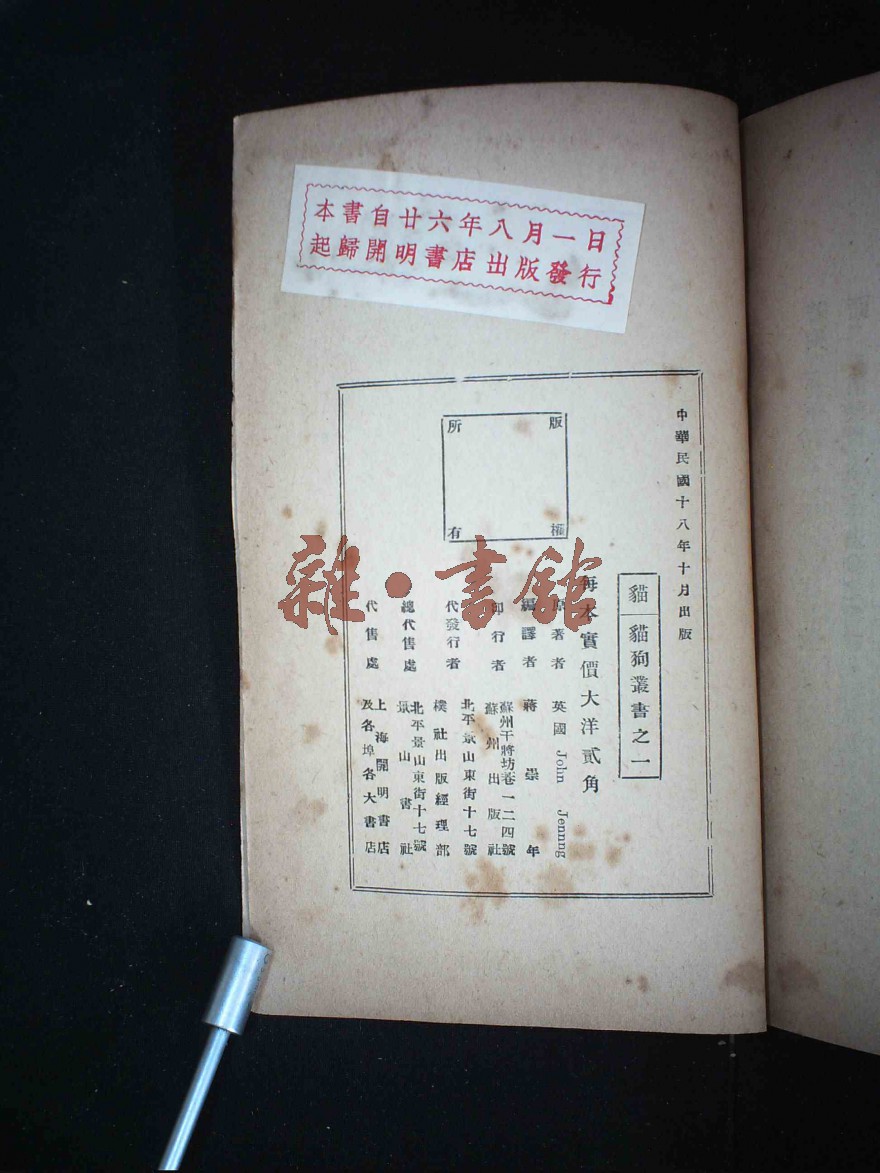 本書自廿六年八月一日
起歸開明書店出版發行
中華民國十八年十月出版
貓 貓狗叢書之一
每本實價大洋貳角
原著者 英國 John Jennng
編譯者 蔣崇年
印行者 蘇州干將坊巷一二四號
蘇州出版社
代發行者 北平景山東街十七號
樸社出版經理部
總代售處 北平景山東街十七號
景山書社
代售處 上海開明書店
及各埠各大書店
版權
所有
雜·書館